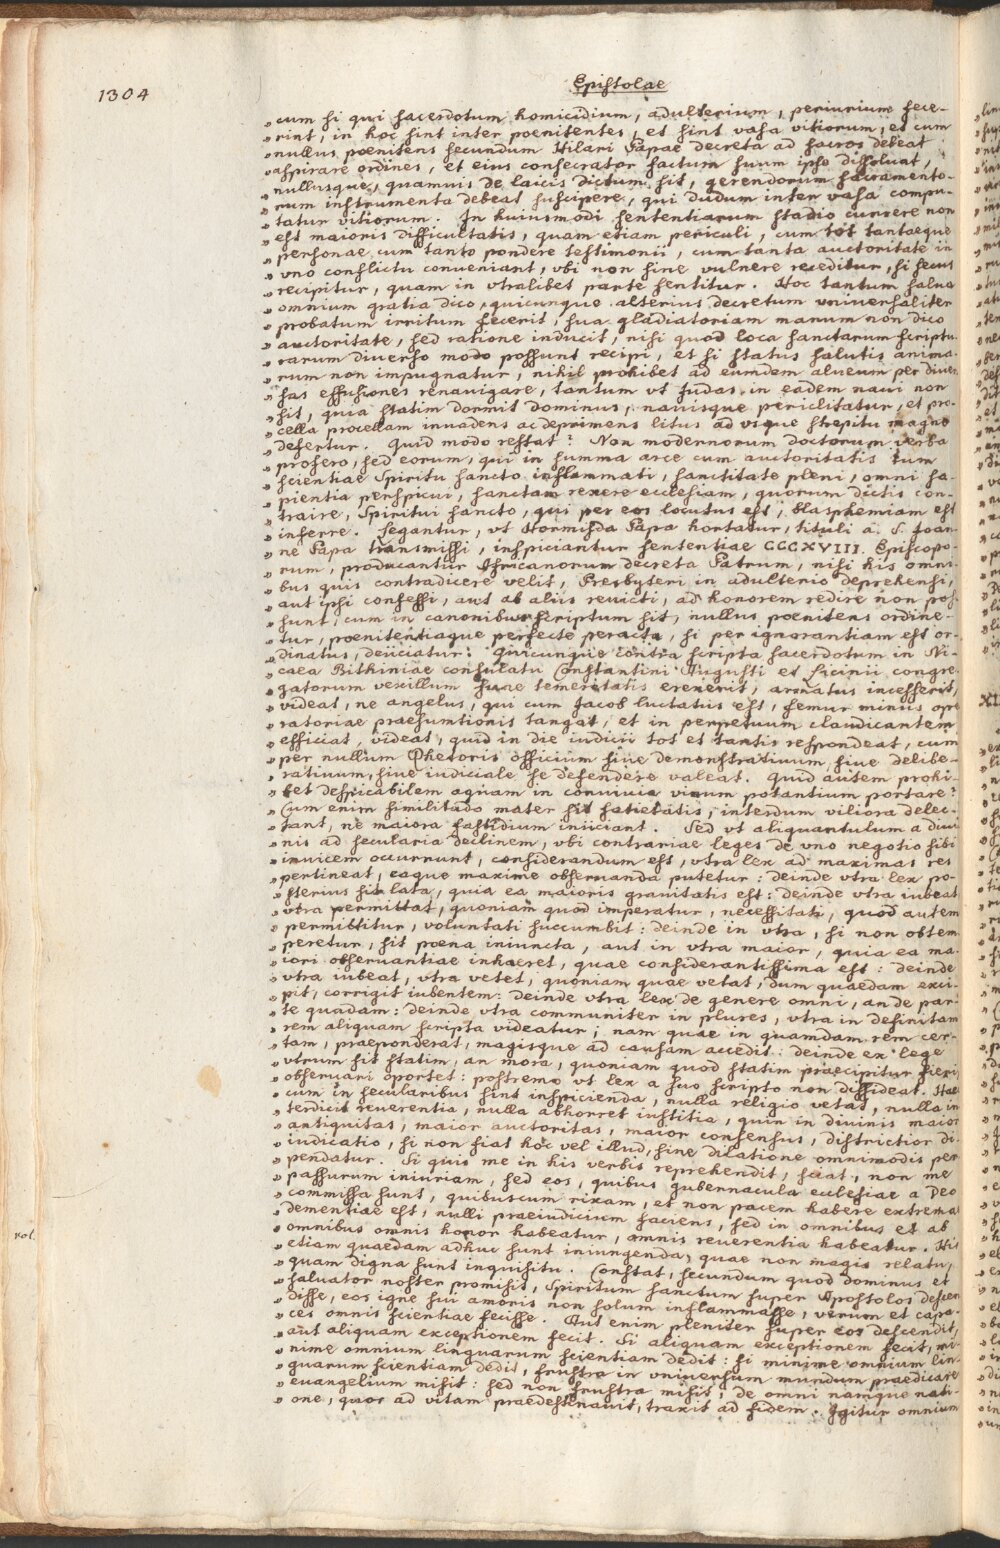 1304
Epistolae
„ cum si qui sacerdotum homicidium, adulterium, periurium fece-
„ rint, in hoc sint inter poenitentes, et sint vasa vitiorum, et cum
„ nullus poenitens secundum Hilari Papae decreta ad sacros debeat
„ aspirare ordines, et eius consecrator factum suum ipse dissoluat,
„ nullusque, quamuis de laicis dictum sit, gerendorum sacramento-
„ rum instrumenta debeat suscipere, qui dudum inter vasa compu-
„ tatur vitiorum. In huiusmodi sententiarum stadio currere non
„ est maioris difficultatis, quam etiam periculi, cum tot tantaeque
„ personae cum tanto pondere testimonii, cum tanta auctoritate in
„ vno conflictu conueniant, vbi non sine vulnere receditur, si secus
„ recipitur, quam in vtralibet parte sentitur. Hoc tantum salua
„ omnium gratia dico, quicunque alterius decretum vniuersaliter
„ probatum irritum fecerit, sua gladiatoriam manum non dico
„ auctoritate, sed ratione inducit, nisi quod loca sanctarum scriptu
„ rarum diuerso modo possunt recipi, et si status salutis anima-
„ rum non impugnatur, nihil prohibet ad eumdem alueum per diuer
„ sas effusiones renauigare, tantum vt Judas in eadem naui non
„ sit, quia statim dormit dominus, nauisque periclitatur, et pro-
„ cella procellam inuadens ac deprimens litus ad vsque strepitu magno
„ defertur. Quid modo restat? Non modernorum doctorum verba
„ profero, sed eorum, qui in summa arce cum auctoritatis tum
„ scientiae Spiritu sancto inflammati, sanctitate pleni, omni sa-
„ pientia perspicui, sanctam rexere ecclesiam, quorum dictis con-
„ traire, Spiritui sancto, qui per eos locutus est, blasphemiam est
„ inferre. Legantur, vt Hormisda Papa hortatur, tituli a S. Joan-
„ ne Papa transmissi, inspiciantur sententiae CCCXVIII. Episcopo-
„ rum, producantur Africanorum decreta Patrum, nisi his omni-
„ bus quis contradicere velit, Presbyteri in adulterio deprehensi,
„ aut ipsi confessi, aut ab aliis reuicti, ad honorem redire non pos-
„ sunt, cum in canonibus scriptum sit, nullus poenitens ordine-
„ tur, poenitentiaque perfecte peracta, si per ignorantiam est or-
„ dinatus, deiiciatur. Quicunque contra scripta sacerdotum in Ni-
„ caea Bithiniae consulatu Constantini Augusti et Licinii congre
„ gatorum vexillum suae temeritatis erexerit, armatus incesserit,
„ videat, ne angelus, qui cum Jacob luctatus est, femur minus ope
„ ratoriae praesumtionis tangat, et in perpetuum claudicantem
„ efficiat, videat, quid in die iudicii tot et tantis respondeat, cum
„ per nullum Rhetoris officium siue demonstratiuum, siue delibe-
„ ratiuum, siue iudiciale se defendere valeat. Quid autem prohi-
„ bet despicabilem aquam in conuiuia vinum potantium portare?
„ Cum enim similitudo mater sit satietatis, interdum viliora delec-
„ tant, ne maiora fastidium iniiciant. Sed vt aliquantulum a diui
„ nis ad secularia declinem, vbi contrariae leges de vno negotio sibi
„ inuicem occurrunt, considerandum est, vtra lex ad maximas res
„ pertineat, eaque maxime obseruanda putetur: deinde vtra lex po-
„ sterius sit lata, quia ea maioris grauitatis est: deinde vtra iubeat
„ vtra permittat, quoniam quod imperatur, necessitati, quod autem
„ permittitur, voluntati succumbit: deinde in vtra, si non obtem
„ peretur, sit poena iniuncta, aut in vtra maior, quia ea ma-
„ iori obseruantiae inhaeret, quae considerantissima est: deinde
„ vtra iubeat, vtra vetet, quoniam quae vetat, dum quaedam exci-
„ pit, corrigit iubentem: deinde vtra lex de genere omni, an de par-
„ te quadam: deinde vtra communiter in plures, vtra in definitam
„ rem aliquam scripta videatur; nam quae in quamdam rem cer-
„ tam, praeponderat, magisque ad causam accedit: deinde ex lege
„ vtrum sit statim, an mora, quoniam quod statim praecipitur fieri
„ obseruari oportet: postremo vt lex a suo scripto non diffideat. Hae
„ cum in secularibus sint inspicienda, nulla religio vetat, nulla in
„ terdicit reuerentia, nulla abhorret iustitia, quin in diuinis maior
„ antiquitas, maior auctoritas, maior consensus, districtior di
„ iudicatio, si non fiat hoc vel illud, sine dilatione omnimodis per
„ pendatur. Si quis me in his verbis reprehendit, sciat, non me
„ passurum iniuriam, sed eos, quibus gubernacula ecclesiae a Deo
„ commissa sunt, quibuscum rixam, et non pacem habere extrema
„ dementiae est, nulli praeiudicium faciens, sed in omnibus et ab
„ omnibus omnis honor habeatur, omnis reuerentia habeatur. His
„ etiam quaedam adhuc sunt iniungenda, quae non magis relatu,
„ quam digna sunt inquisitu. Constat, secundum quod dominus et
„ saluator noster promisit, Spiritum sanctum super Apostolos descen
„ disse, eos igne sui amoris non solum inflammasse, verum et capa-
„ ces omnis scientiae fecisse. Aut enim pleniter super eos descendit,
„ aut aliquam exceptionem fecit. Si aliquam exceptionem fecit, mi-
„ nime omnium linguarum scientiam dedit: si minime omnium lin-
„ guarum scientiam dedit, frustra in vniuersum mundum praedicare
„ euangelium misit: sed non frustra misit, de omni namque nati-
„ one, quos ad vitam praedestinauit, traxit ad fidem. Igitur omnium
vol.